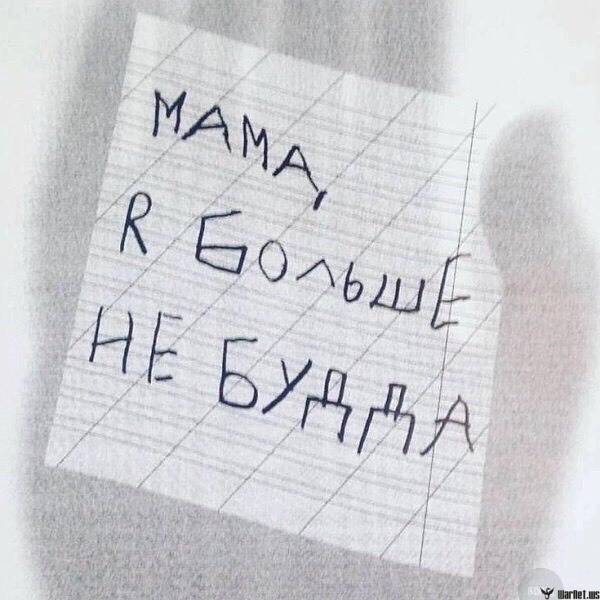 МАМА,
R БОЛЬШЕ
НЕ БУДДА
WarNet.ws